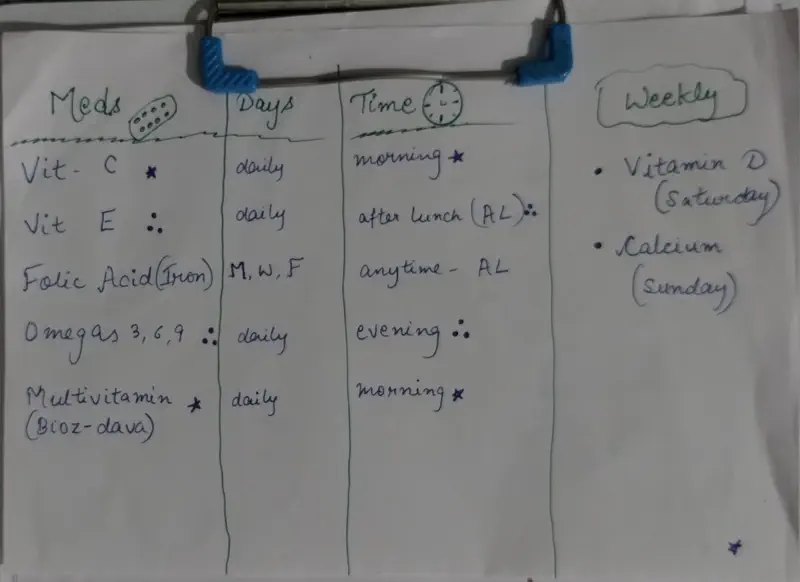 Meds Days Time Weekly
Vit - C ★ daily morning ★
Vit E ∴ daily after lunch (AL) ∴
Folic Acid (Iron) M, W, F anytime - AL
Omegas 3, 6, 9 ∴ daily evening ∴
Multivitamin ★ daily morning ★
(Bioz-dava)
• Vitamin D
(Saturday)
• Calcium
(Sunday)
★